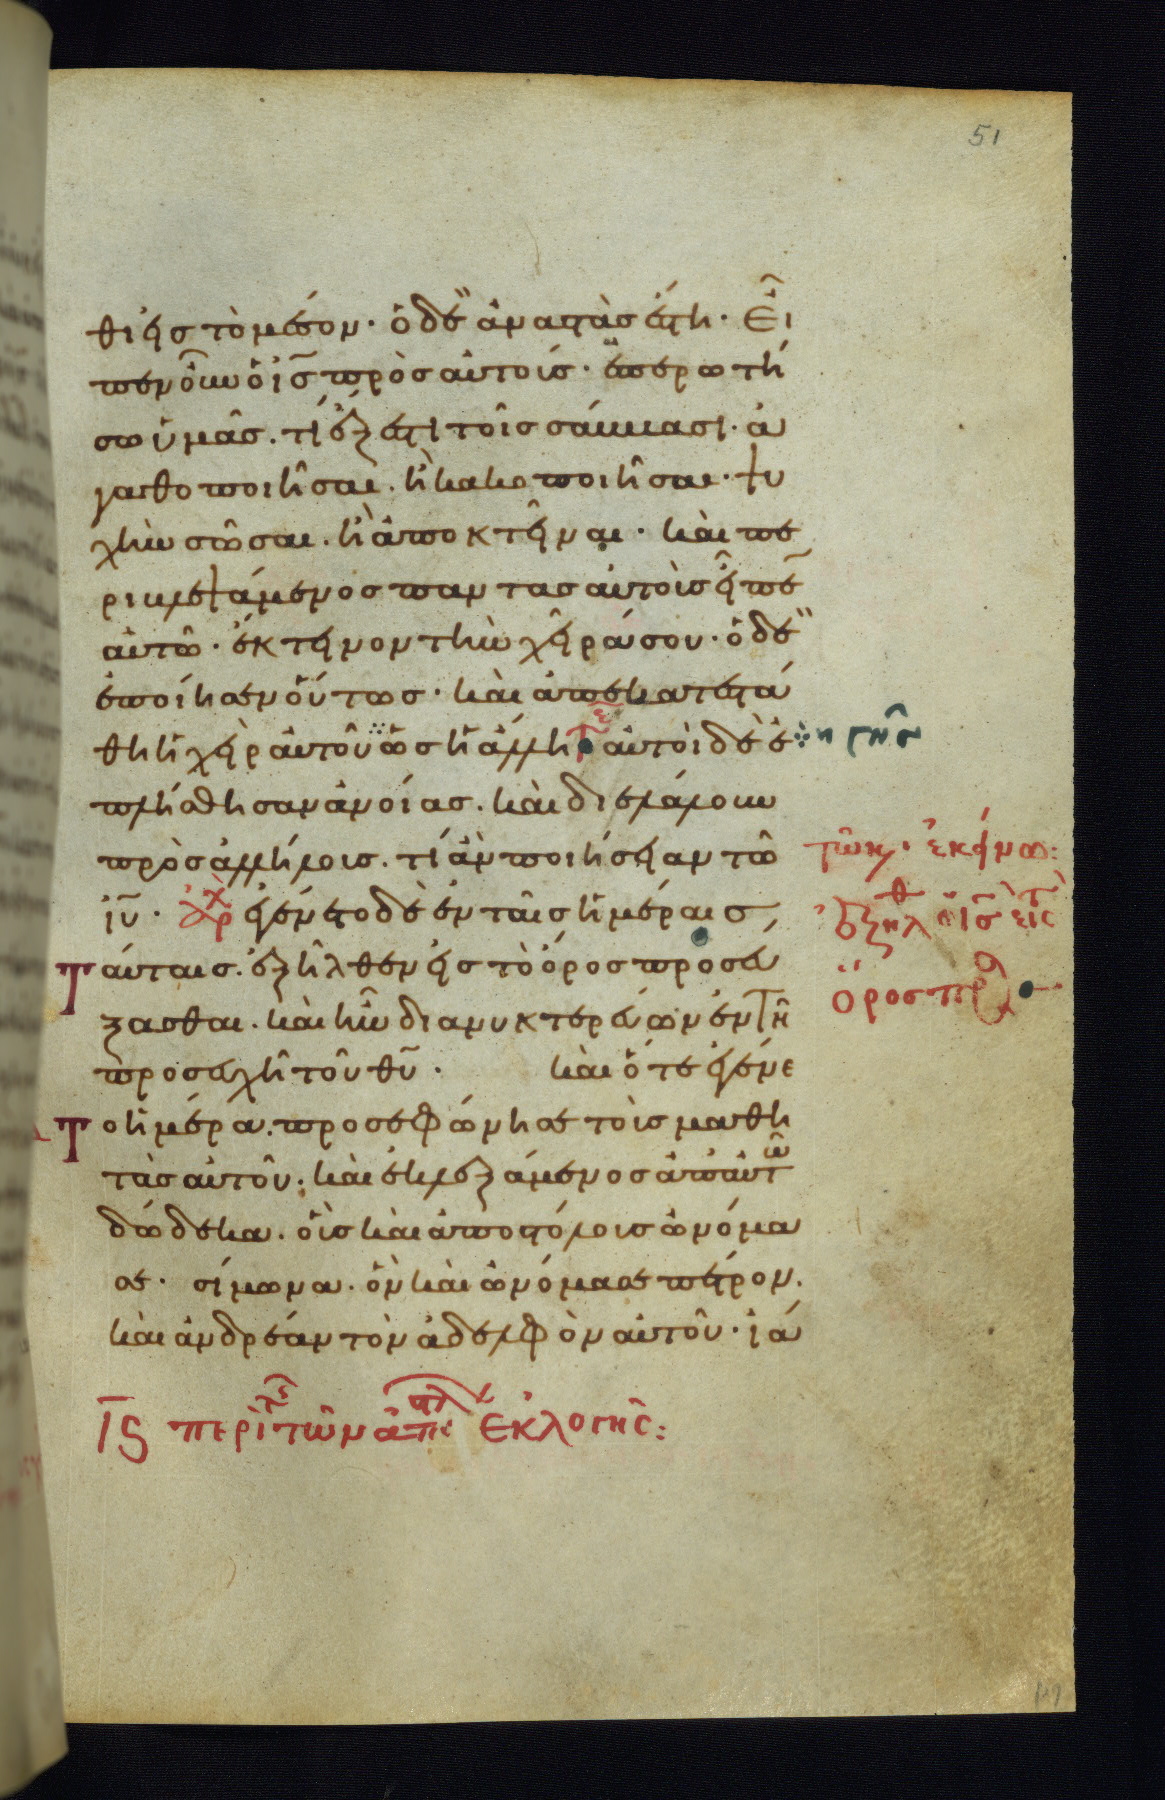 51
θι εἰς τὸ μέσον· ὁ δὲ ἀναστὰς ἔστη· Εἶ
πεν οὖν ὁ ις πρὸς αὐτούς· ἐπερωτή
σω ὑμᾶς. τί ἔξεστι τοῖς σάββασι. ἀ
γαθοποιῆσαι. ἢ κακοποιῆσαι· ψυ
χὴν σῶσαι. ἢ ἀποκτεῖναι· καὶ πε
ριβλεψάμενος παντας αὐτοὺς εἶπε
αὐτῶ· ἔκτεινον τὴν χεῖρά σου· ὁ δὲ
ἐποίησεν οὕτως· καὶ ἀπεκατεστά
θη ἡ χεὶρ αὐτοῦ ὡς ἡ ἄλλη αὐτοὶ δὲ ἐ
ὑγιὴς
πλήσθησαν ἀνοίας. καὶ διελάλουν
πρὸς ἀλλήλους. τί ἂν ποιήσειαν τῶ
ιυ· ἐγένετο δὲ ἐν ταῖς ἡμέραις
ταύταις. ἐξῆλθεν εἰς τὸ ὄρος προσεύ
ξασθαι. καὶ ἦν διανυκτερεύων ἐν τῆ
προσευχῆ τοῦ θυ· καὶ ὅτε ἐγένε
το ἡμέρα. προσεφώνησε τοὺς μαθη
τὰς αὐτοῦ· καὶ ἐκλεξάμενος ἀπ' αὐτῶ
δώδεκα. οὓς καὶ ἀποστόλους ὠνόμα
σε· σίμωνα. ὃν καὶ ὠνόμασε πέτρον.
καὶ ἀνδρέαν τὸν ἀδελφὸν αὐτοῦ· ἰά
τῶ κ ἐκείνω:
ἐξηλθ ὁ ις εἰς τ
ὄρος πρ
ις περὶ τῆς τῶν ἀπ ἐκλογῆς: